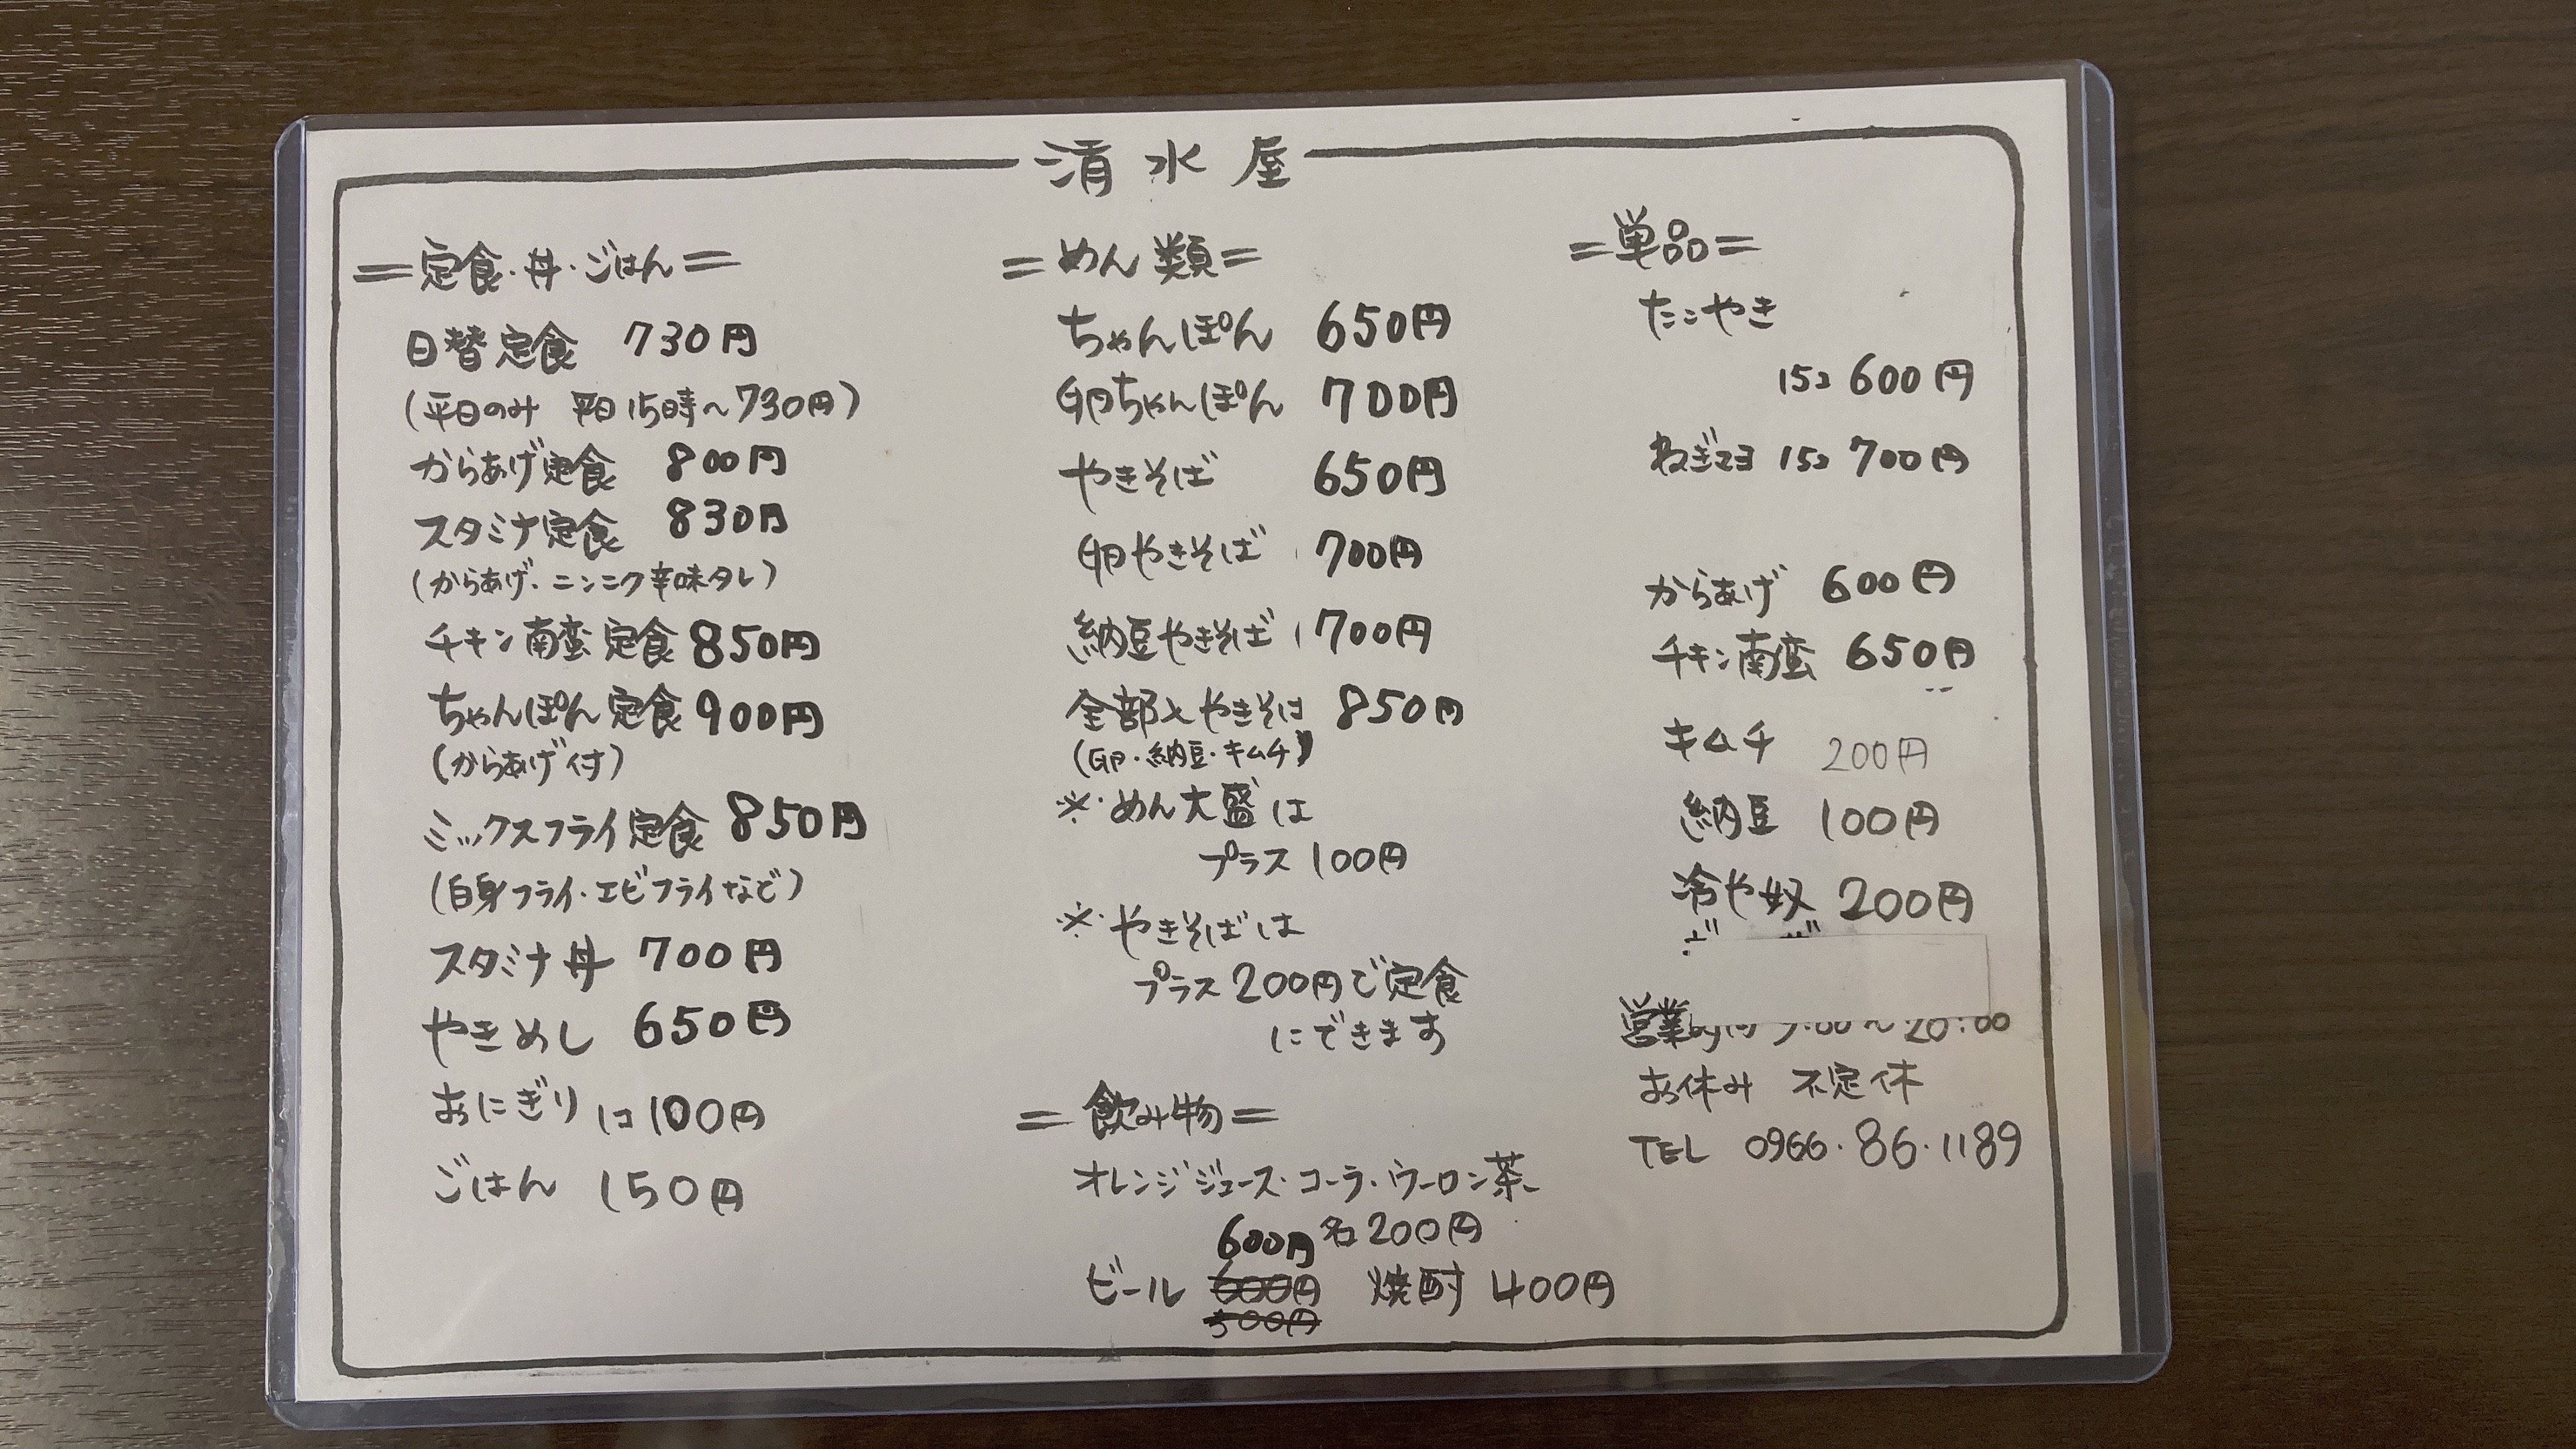 清水屋
=定食・丼・ごはん=
日替定食 730円
(平日のみ 平日15時～730円)
からあげ定食 800円
スタミナ定食 830円
(からあげ、ニンニク辛味タレ)
チキン南蛮定食 850円
ちゃんぽん定食 900円
(からあげ付)
ミックスフライ定食 850円
(白身フライ・エビフライなど)
スタミナ丼 700円
やきめし 650円
おにぎり 1コ 100円
ごはん 150円
=めん類=
ちゃんぽん 650円
卵ちゃんぽん 700円
やきそば 650円
卵やきそば 700円
納豆やきそば 700円
全部入やきそば 850円
(卵・納豆・キムチ)
※めん大盛は
プラス100円
※やきそばは
プラス200円で定食
にできます
=飲み物=
オレンジジュース・コーラ・ウーロン茶
各200円
600円
ビール 600円 焼酎 400円
500円
=単品=
たこやき
15コ 600円
ねぎマヨ 15コ 700円
からあげ 600円
チキン南蛮 650円
キムチ 200円
納豆 100円
冷や奴 200円
営業時間 9:00～20:00
お休み 不定休
TEL 0966・86・1189